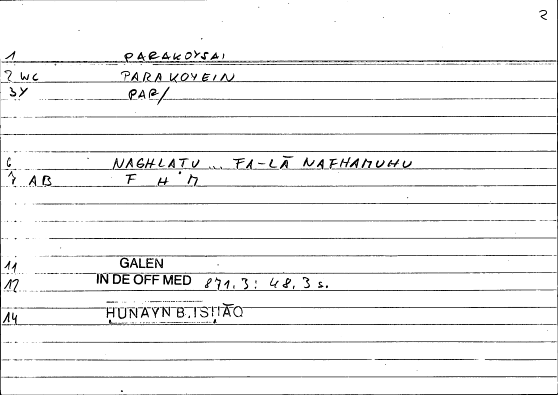 2
1 PARAKOYSAI
2 WC PARAKOYEIN
3Y PAR/
6 NAGHLATU ... FA-LĀ NAFHAMUHU
7 AB F H M
11 GALEN
12 IN DE OFF MED 871.3: 48.3 s.
14 HUNAYN B. ISḤĀQ